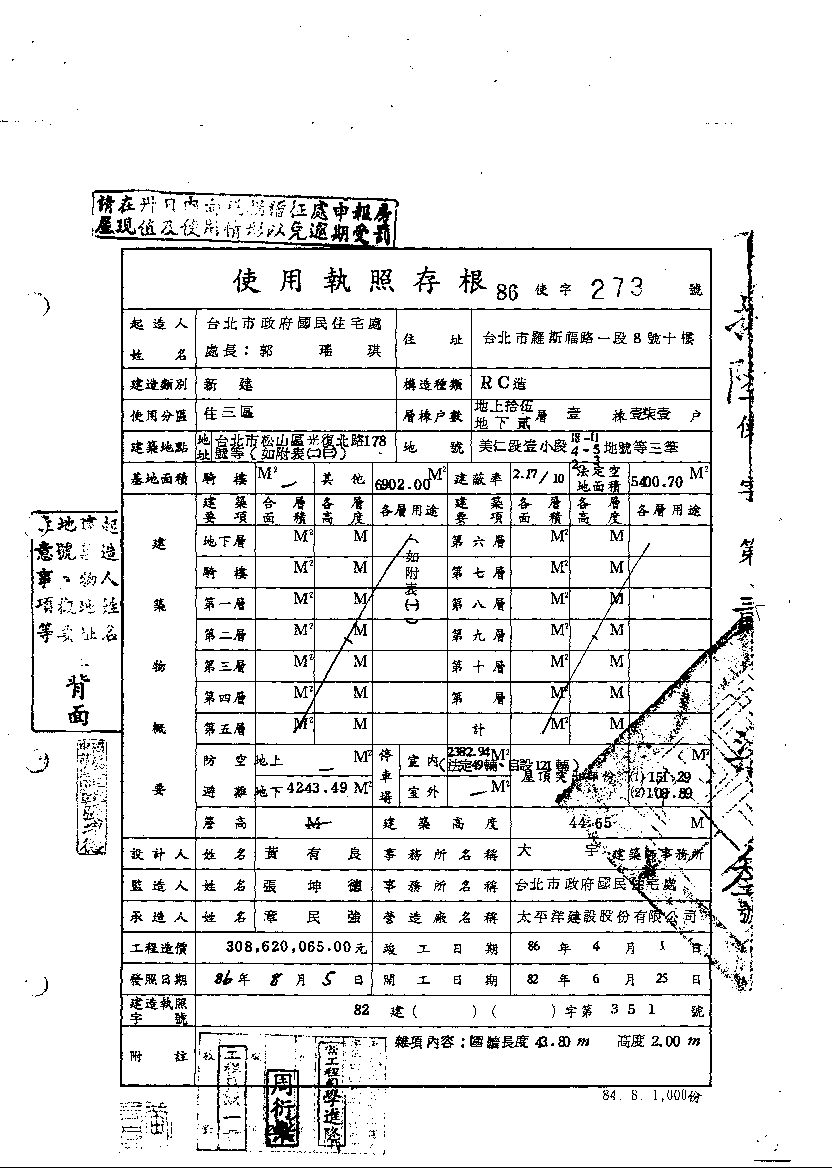 請在卅日內向稅捐稽征處申報房
屋現值及使用情形以免逾期受罰
使用執照存根 86 使字 273 號
起造人姓名 台北市政府國民住宅處
處長：郭瑤琪
住址 台北市羅斯福路一段8號十樓
建造類別 新建 構造種類 RC造
使用分區 住三區 層棟戶數 地上拾伍層 地下貳層 壹棟 壹柒壹戶
建築地點 地址 台北市松山區光復北路178號等(如附表(二))
地號 美仁段壹小段 地號等三筆
基地面積 騎樓 M² 其他 6902.00 M² 建蔽率 2.17/10 法定空地面積 5400.70 M²
建築概要
建築要項 各層面積 各層高度 各層用途 建築要項 各層面積 各層高度 各層用途
地下層 M² M 第六層 M² M
騎樓 M² M 第七層 M² M
第一層 M² M 第八層 M² M
第二層 M² M 第九層 M² M
第三層 M² M 第十層 M² M
第四層 M² M 第 層 M² M
第五層 M² M 計 M² M
(如附表(一))
防空避難 地上 — M² 停車場 室內 2382.94M² (法定49輛、自設121輛)
地下 4243.49 M² 室外 — M²
屋頂突出部份 (1)151.29 (2)108.89 M²
簷高 M 建築高度 44.65 M
設計人 姓名 黃有良 事務所名稱 大宇建築師事務所
監造人 姓名 張坤德 事務所名稱 台北市政府國民住宅處
承造人 姓名 章民強 營造廠名稱 太平洋建設股份有限公司
工程造價 308,620,065.00元 竣工日期 86年4月1日
發照日期 86年8月5日 開工日期 82年6月25日
建造執照字號 82建( )( )字第351號
附註 雜項內容：圍牆長度43.80m 高度2.00m
周衍樂
84.8.1,000份
背面